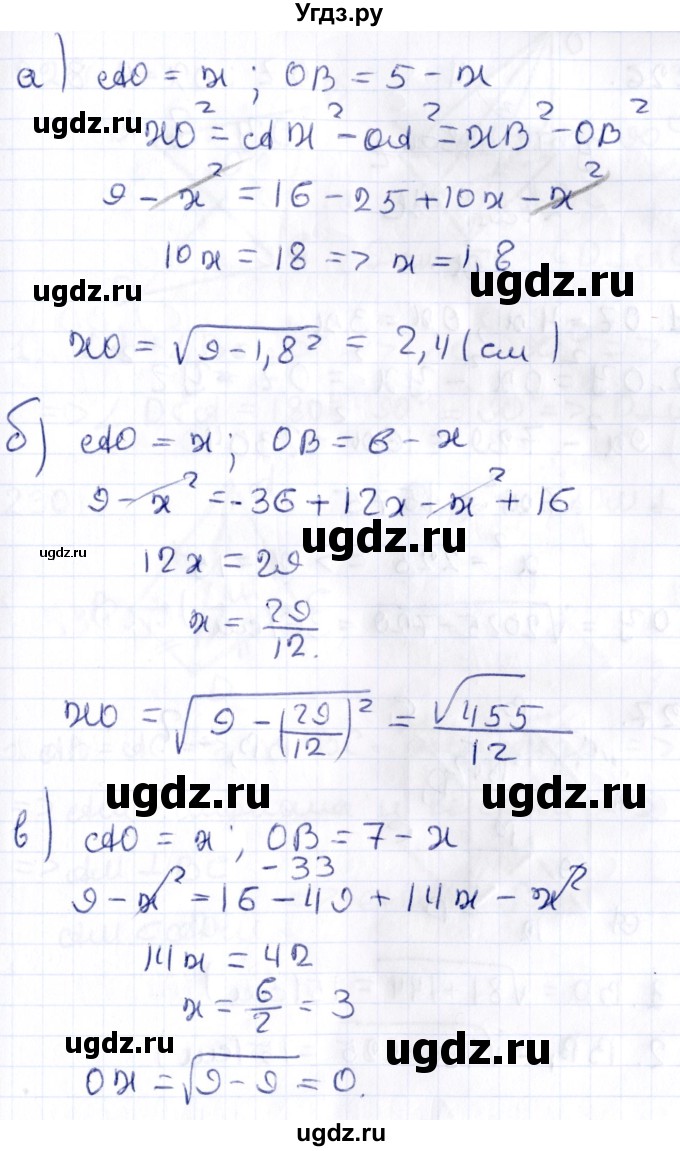 Угдз.ру
а) AO = x ; OB = 5 - x
ugdz.ru
ЖO² = AЖ² - OA² = ЖB² - OB²
9 - x² = 16 - 25 + 10x - x²
10x = 18 => x = 1,8
ugdz.ru
ugdz.ru
ЖO = √9 - 1,8² = 2,4 (см)
б) AO = x ; OB = 6 - x
9 - x² = -36 + 12x - x² + 16
ugdz.ru
ugdz.ru
12x = 29
x = 29/12.
ЖO = √9 - (29/12)² = √455/12
ugdz.ru
ugdz.ru
в) AO = x ; OB = 7 - x
-33
9 - x² = 16 - 49 + 14x - x²
14x = 42
x = 6/2 = 3
ugdz.ru
ugdz.ru
OЖ = √9 - 9 = 0.
ugdz.ru